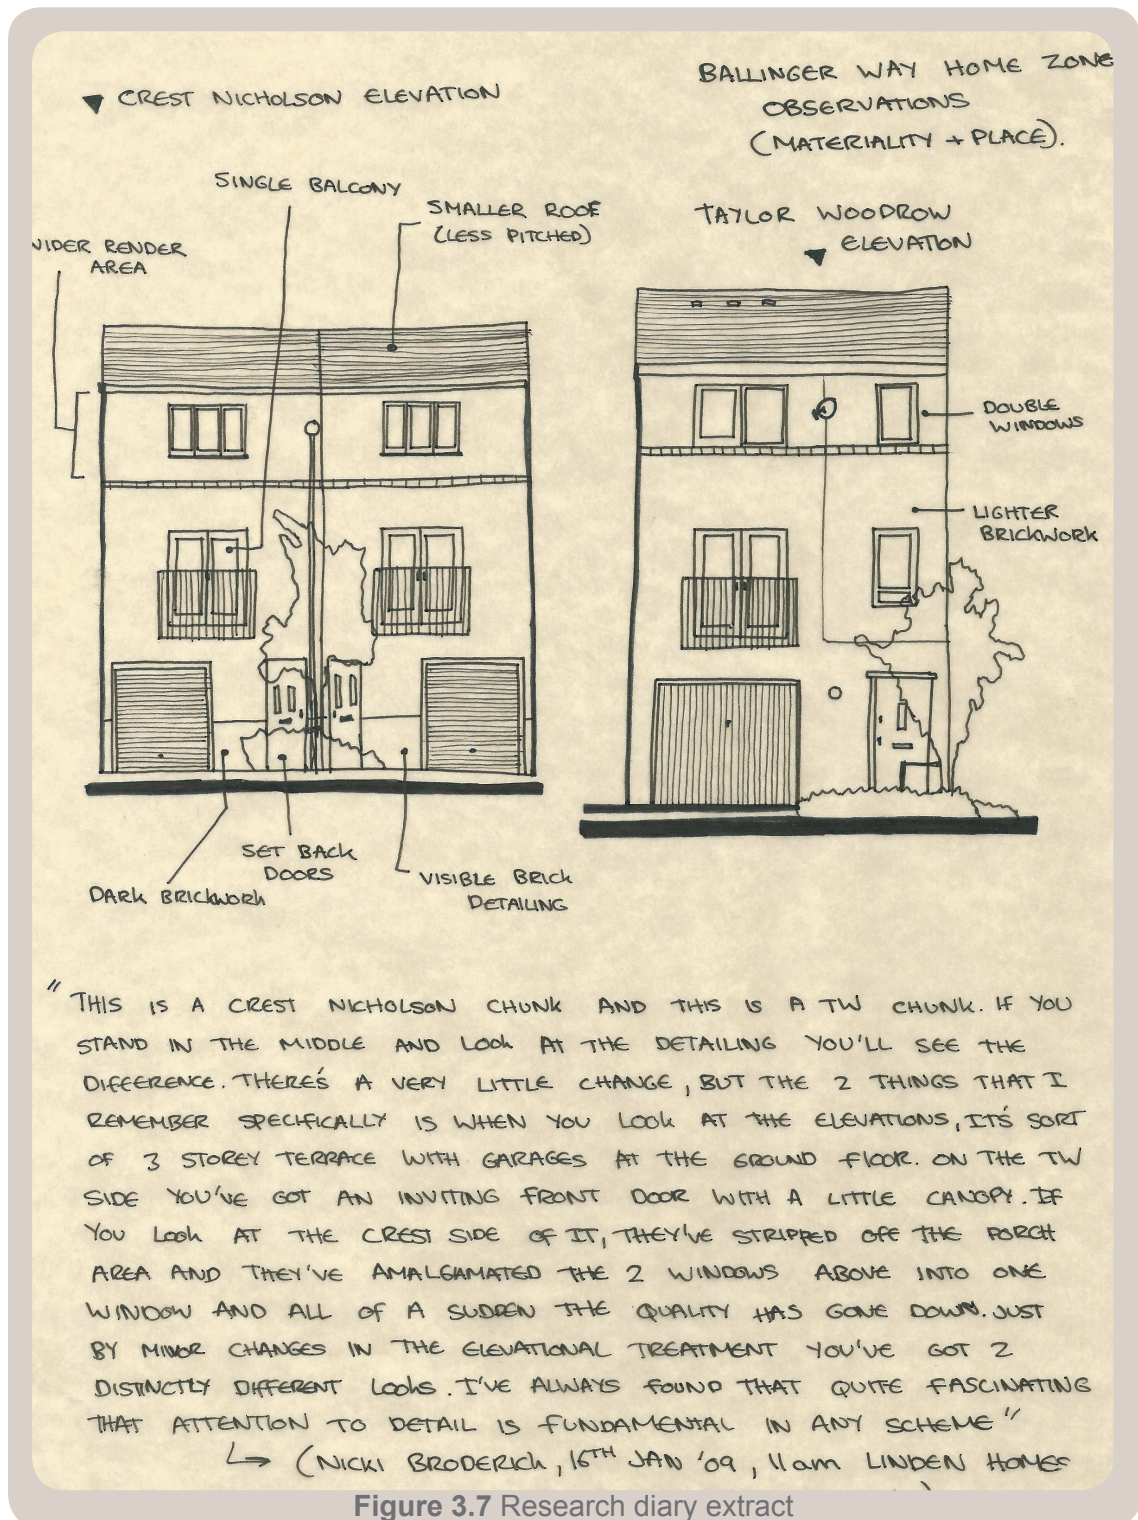 ▼ CREST NICHOLSON ELEVATION
BALLINGER WAY HOME ZONE
OBSERVATIONS
(MATERIALITY + PLACE).
SINGLE BALCONY
SMALLER ROOF
(LESS PITCHED)
TAYLOR WOODROW
▼ ELEVATION
WIDER RENDER
AREA
DOUBLE
WINDOWS
LIGHTER
BRICKWORK
SET BACK
DOORS
DARK BRICKWORK
VISIBLE BRICK
DETAILING
"THIS IS A CREST NICHOLSON CHUNK AND THIS IS A TW CHUNK. IF YOU
STAND IN THE MIDDLE AND LOOK AT THE DETAILING YOU'LL SEE THE
DIFFERENCE. THERE'S A VERY LITTLE CHANGE, BUT THE 2 THINGS THAT I
REMEMBER SPECIFICALLY IS WHEN YOU LOOK AT THE ELEVATIONS, IT'S SORT
OF 3 STOREY TERRACE WITH GARAGES AT THE GROUND FLOOR. ON THE TW
SIDE YOU'VE GOT AN INVITING FRONT DOOR WITH A LITTLE CANOPY. IF
YOU LOOK AT THE CREST SIDE OF IT, THEY'VE STRIPPED OFF THE PORCH
AREA AND THEY'VE AMALGAMATED THE 2 WINDOWS ABOVE INTO ONE
WINDOW AND ALL OF A SUDDEN THE QUALITY HAS GONE DOWN. JUST
BY MINOR CHANGES IN THE ELEVATIONAL TREATMENT YOU'VE GOT 2
DISTINCTLY DIFFERENT LOOKS. I'VE ALWAYS FOUND THAT QUITE FASCINATING
THAT ATTENTION TO DETAIL IS FUNDAMENTAL IN ANY SCHEME"
↳ (NICKI BRODERICK, 16TH JAN '09, 11am LINDEN HOMES
Figure 3.7 Research diary extract